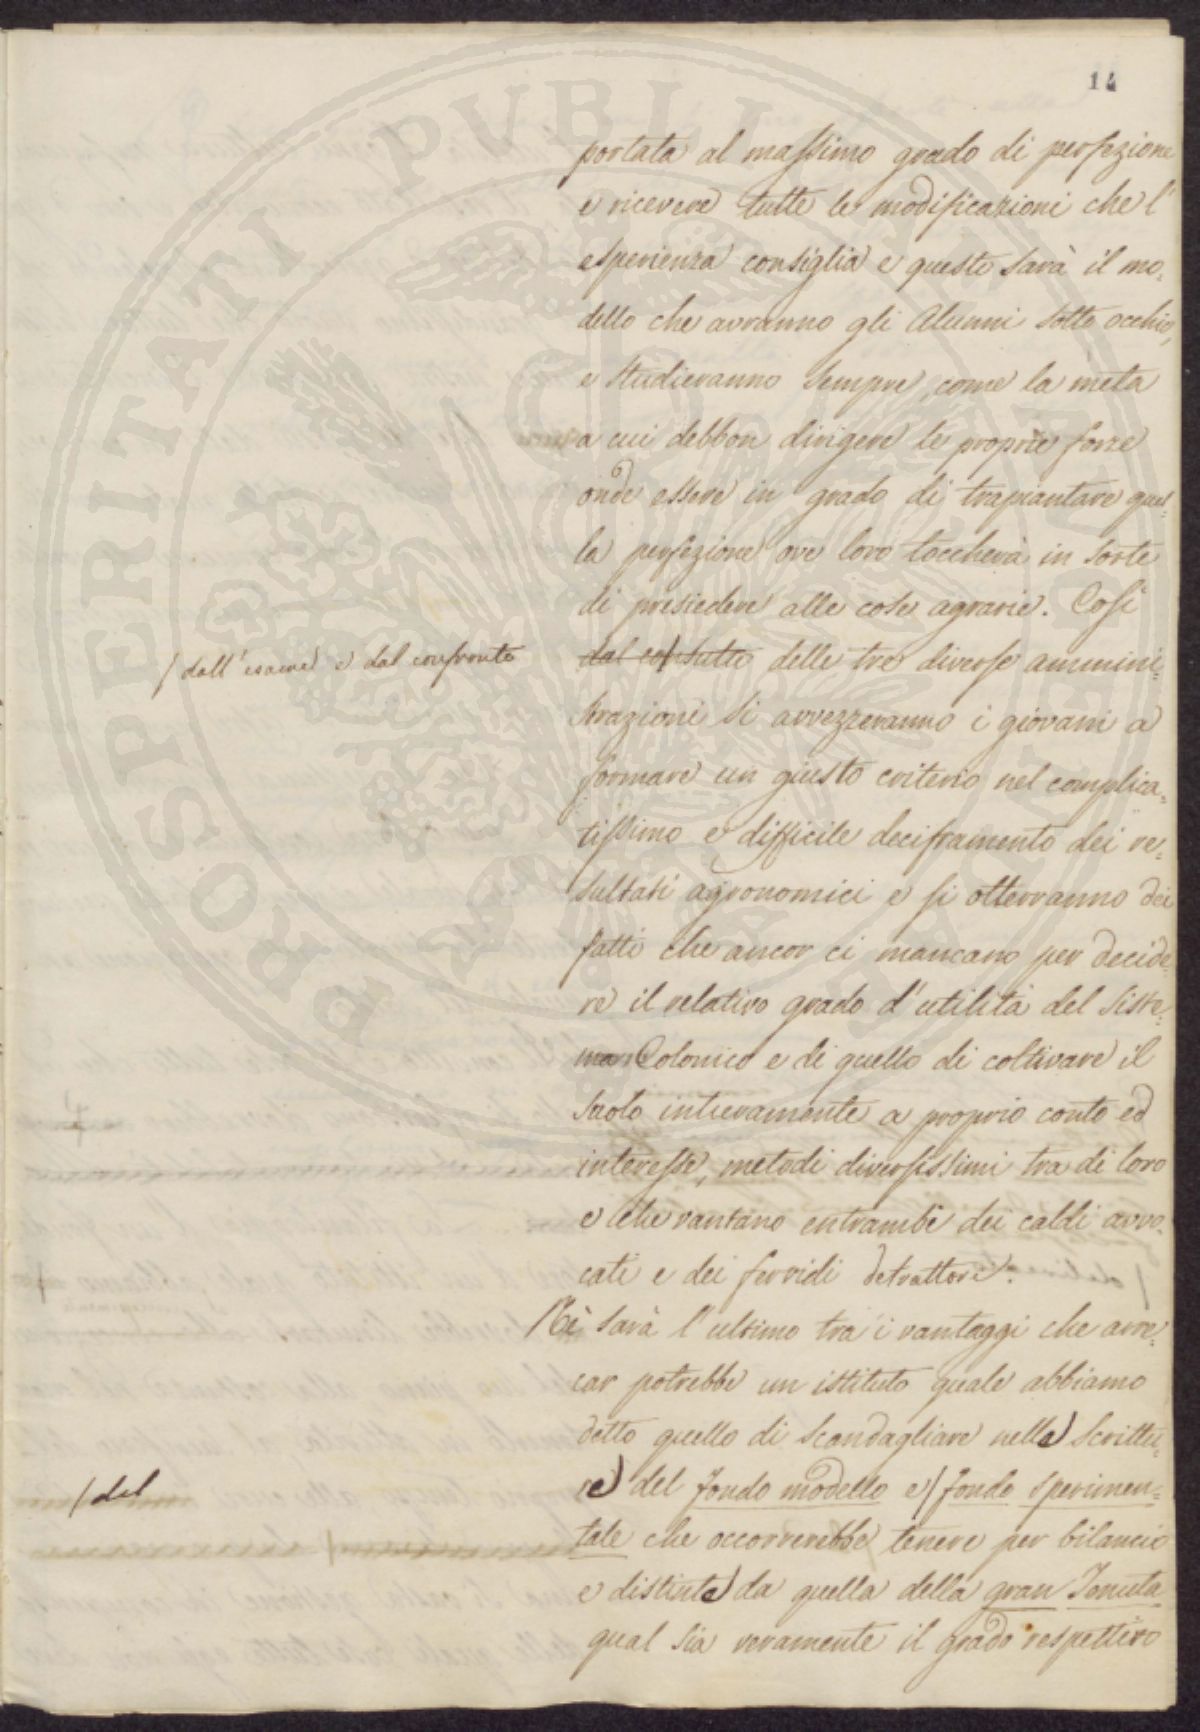 14
portata al massimo grado di perfezione
e ricevere tutte le modificazioni che l'
esperienza consiglia e queste sarà il mo-
dello che avranno gli Alunni sotto occhio,
e studieranno sempre, come la meta
a cui debbon dirigere le proprie forze
onde essere in grado di trapiantare quel-
la perfezione ove loro toccherà in sorte
di presiedere alle cose agrarie. Così
/ dall'esame e dal confronto
dal consulto delle tre diverse ammini-
strazioni si avvezzeranno i giovani a
formare un giusto criterio nel complica-
tissimo e difficile deciframento dei re-
sultati agronomici e si otterranno dei
fatti che ancor ci mancano per decide-
re il relativo grado d'utilità del siste-
ma Colonico e di quello di coltivare il
suolo intieramente a proprio conto ed
interesse, metodi diversissimi tra di loro
e che vantano entrambi dei caldi avvo-
cati e dei fervidi detrattori.
Nè sarà l'ultimo tra i vantaggi che arre-
car potrebbe un istituto quale abbiamo
detto quello di scandagliare nelle scrittu-
re del fondo modello e / fondo sperimen-
/ del
tale che occorrerebbe tenere per bilancio
e distinte da quella della gran Tenuta
qual sia veramente il grado respettivo
PROSPERITATI PUBLICAE AUGENDAE